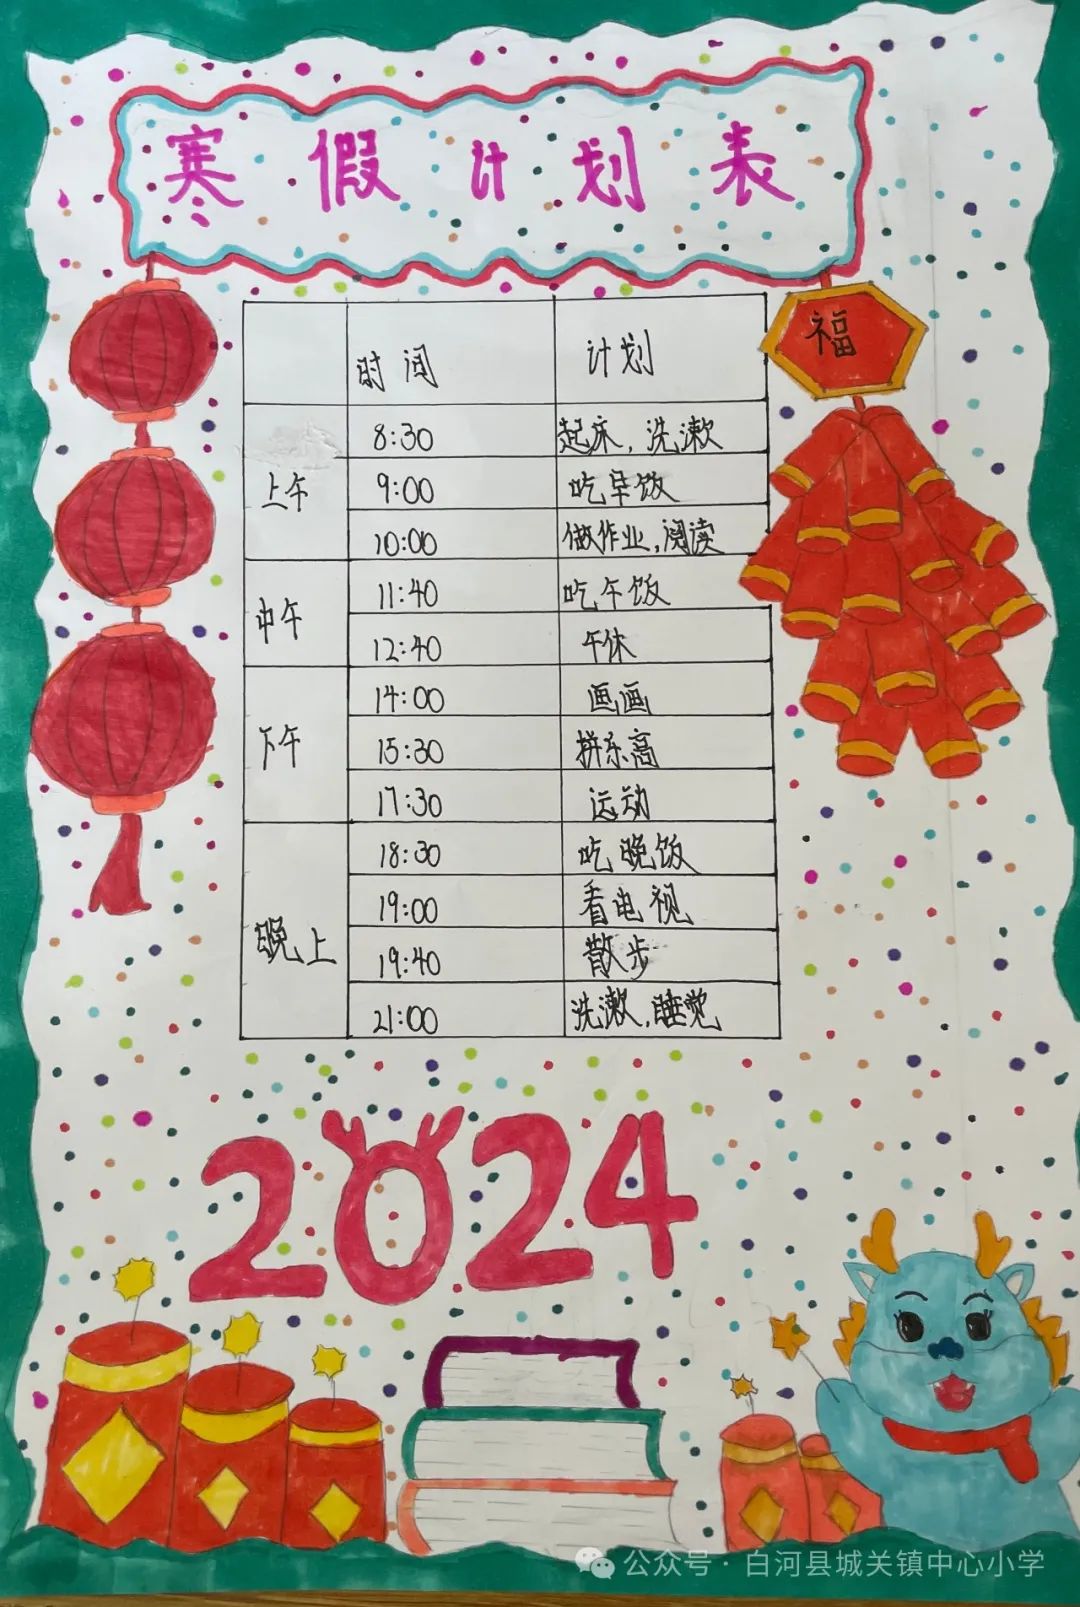 寒假计划表
福
时间 计划
上午
8:30 起床,洗漱
9:00 吃早饭
10:00 做作业,阅读
中午
11:40 吃午饭
12:40 午休
下午
14:00 画画
15:30 拼乐高
17:30 运动
晚上
18:30 吃晚饭
19:00 看电视
19:40 散步
21:00 洗漱,睡觉
2024
公众号·白河县城关镇中心小学